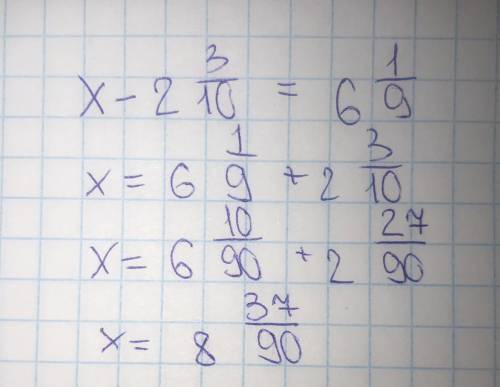 x - 2 3/10 = 6 1/9
x = 6 1/9 + 2 3/10
x = 6 10/90 + 2 27/90
x = 8 37/90